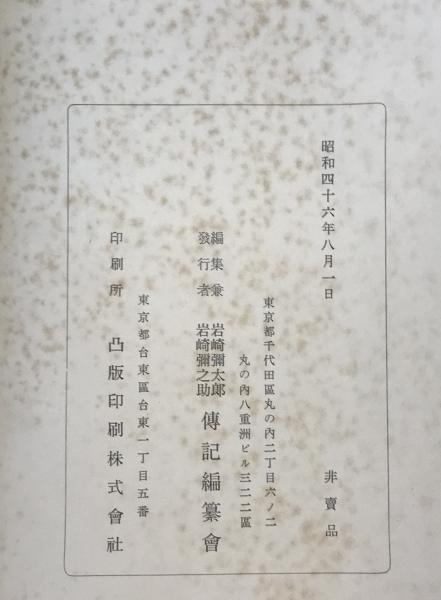 昭和四十六年八月一日
非賣品
東京都千代田區丸の內二丁目六ノ二
丸の內八重洲ビル三二二區
編集兼
發行者
岩崎彌太郎
岩崎彌之助
傳記編纂會
東京都台東區台東一丁目五番
印刷所 凸版印刷株式會社